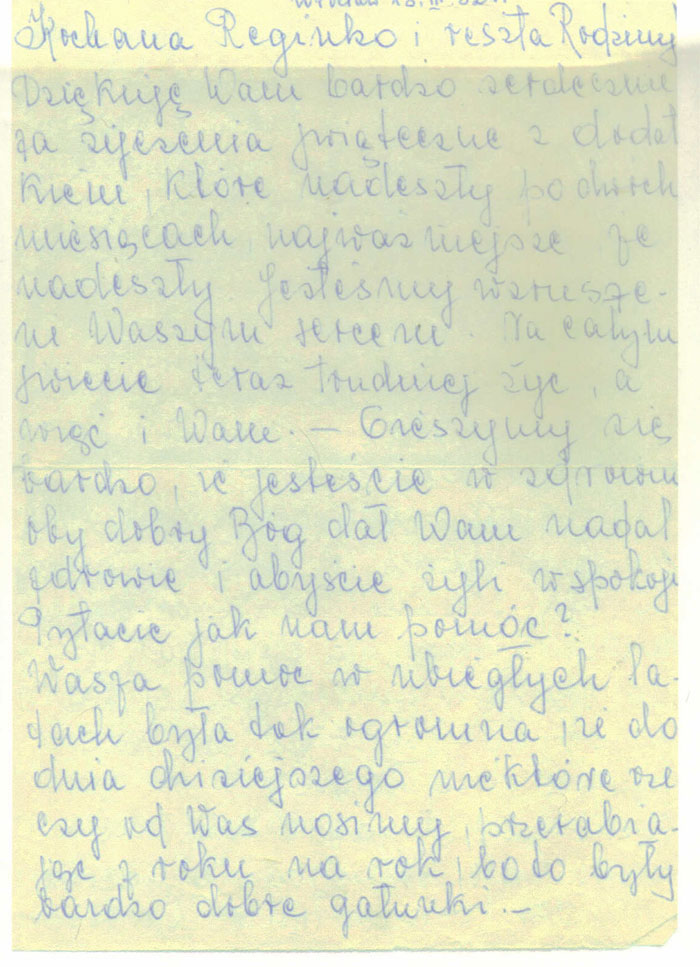 Kochana Reginko i reszta Rodziny
Dziękuję Wam bardzo serdecznie
za życzenia świąteczne z dodat
kiem, które nadeszły po dwóch
miesiącach, najważniejsze że
nadeszły Jesteśmy wzrusze-
ni Waszym sercem. Na całym
świecie teraz trudniej żyć, a
więc i Wam. — Cieszymy się
bardzo, że jesteście w zdrowiu
oby dobry Bóg dał Wam nadal
zdrowie i abyście żyli w spokoju
Pytacie jak nam pomóc?
Wasza pomoc w ubiegłych la-
tach była tak ogromna, że do
dnia dzisiejszego niektóre rze
czy od Was nosimy, przerabia-
jąc z roku na rok, bo to były
bardzo dobre gatunki. —